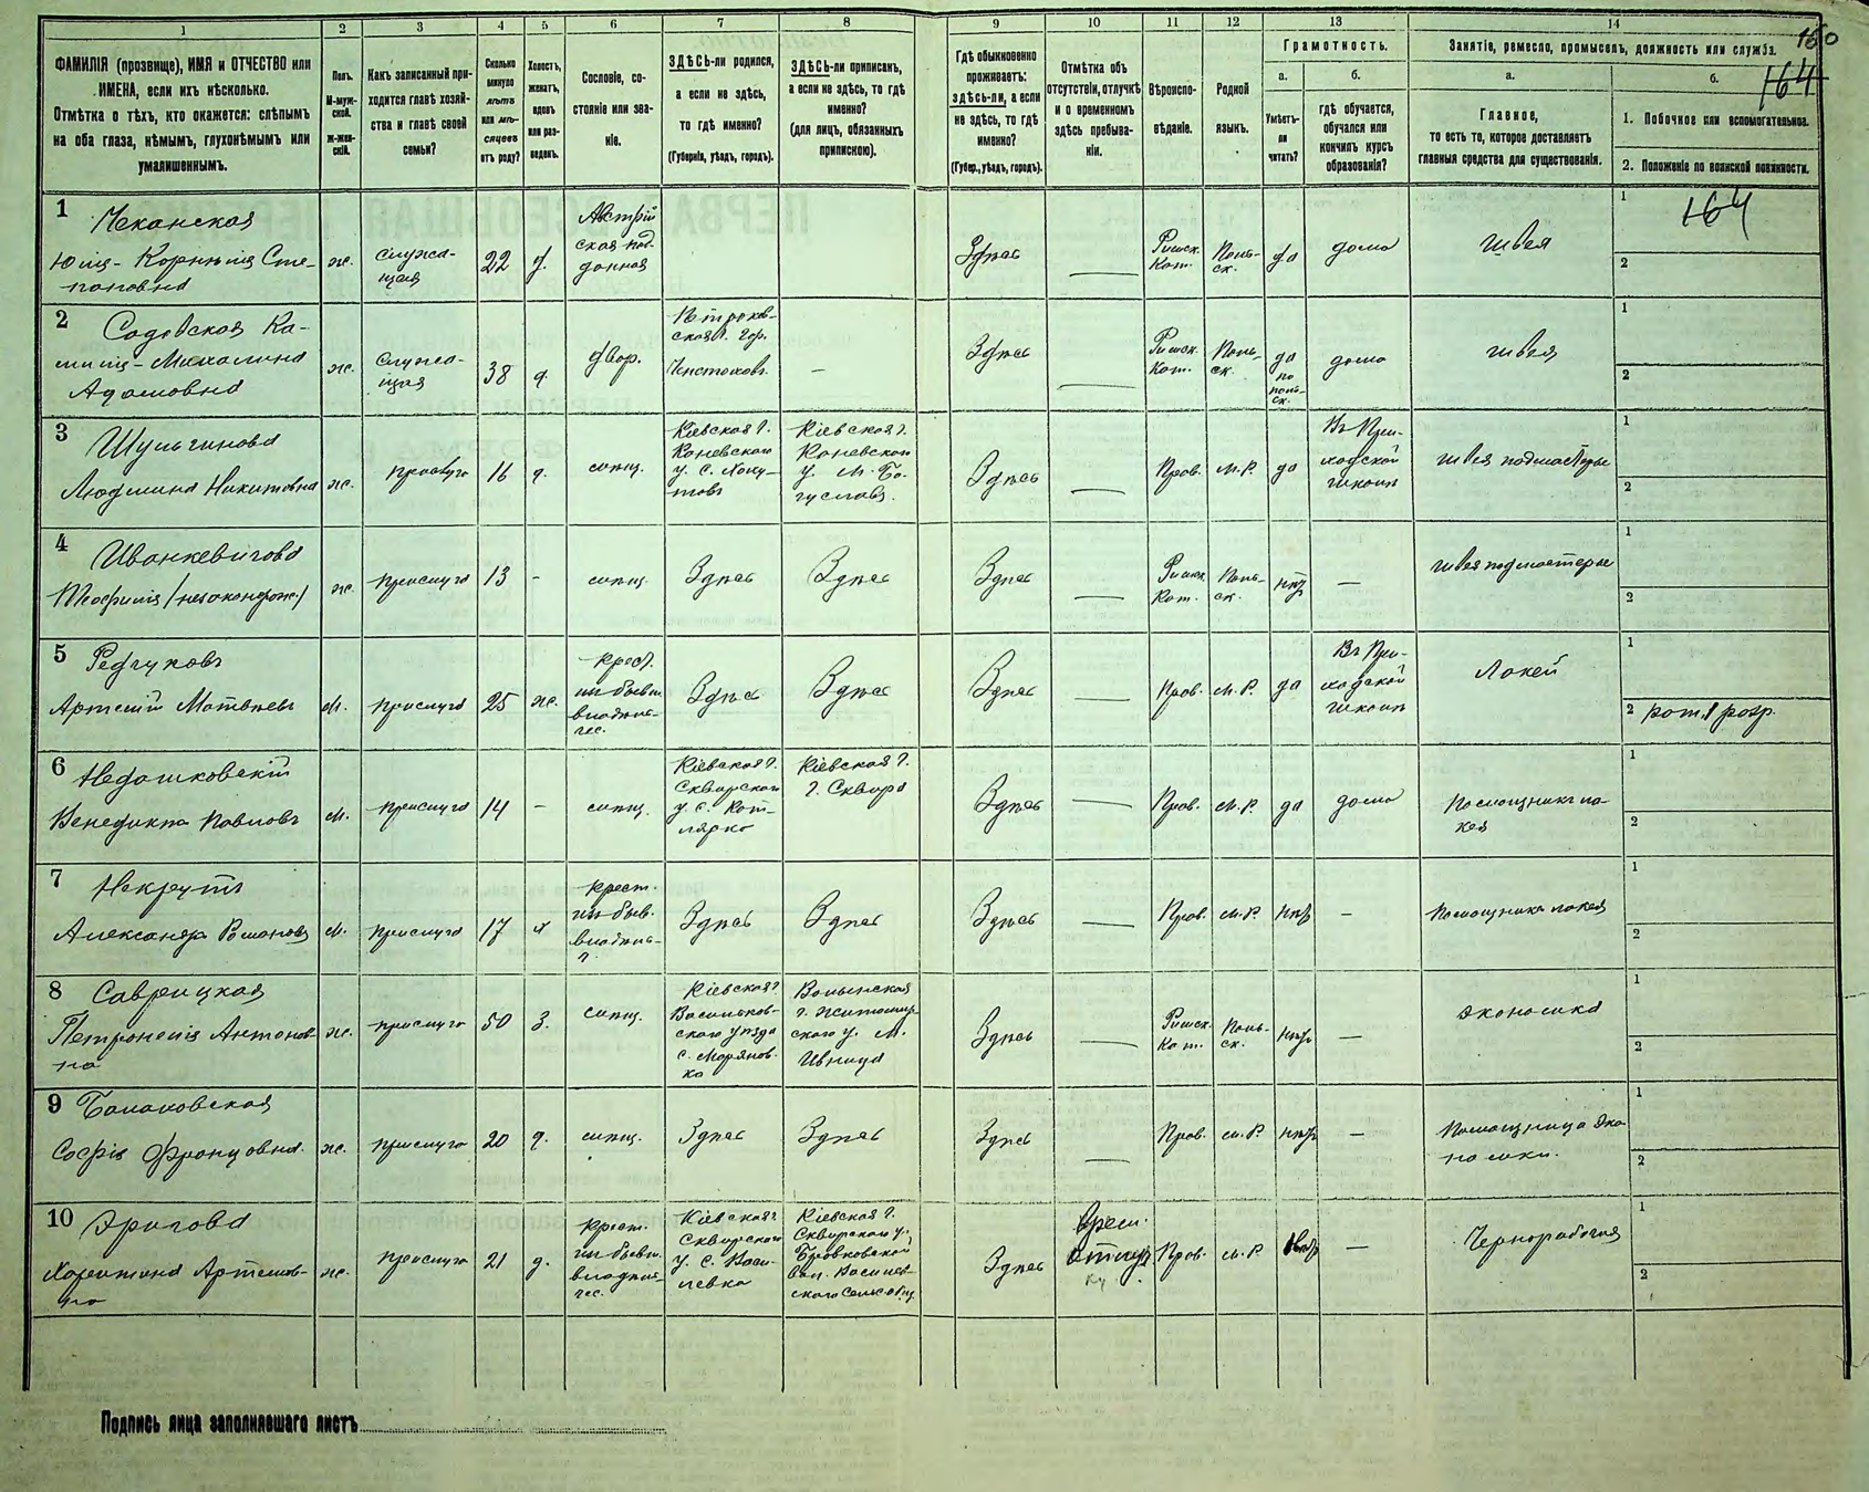 1
2
3
4
5
6
7
8
9
10
11
12
13
14
160
164
ФАМИЛІЯ (прозвище), ИМЯ и ОТЧЕСТВО или
ИМЕНА, если ихъ нѣсколько.
Отмѣтка о тѣхъ, кто окажется: слѣпымъ
на оба глаза, нѣмымъ, глухонѣмымъ или
умалишеннымъ.
Полъ.
М-муж-
ской.
Ж-жен-
скій.
Какъ записанный при-
ходится главѣ хозяй-
ства и главѣ своей
семьи?
Сколько
минуло
лѣтъ
или мѣ-
сяцевъ
отъ роду?
Холостъ,
женатъ,
вдовъ
или раз-
веденъ.
Сословіе, со-
стояніе или зва-
ніе.
ЗДѢСЬ-ли родился,
а если не здѣсь,
то гдѣ именно?
(Губернія, уѣздъ, городъ).
ЗДѢСЬ-ли приписанъ,
а если не здѣсь, то гдѣ
именно?
(для лицъ, обязанныхъ
припискою).
Гдѣ обыкновенно
проживаетъ:
здѣсь-ли, а если
не здѣсь, то гдѣ
именно?
(Губер., уѣздъ, городъ).
Отмѣтка объ
отсутствіи, отлучкѣ
и о временномъ
здѣсь пребыва-
ніи.
Вѣроиспо-
вѣданіе.
Родной
языкъ.
Грамотность.
а.
Умѣетъ-
ли
читать?
б.
гдѣ обучается,
обучался или
кончилъ курсъ
образованія?
Занятіе, ремесло, промыселъ, должность или служба.
а.
Главное,
то есть то, которое доставляетъ
главныя средства для существованія.
б.
1. Побочное или вспомогательное.
2. Положеніе по воинской повинности.
1
Чеканская
Юлія-Корнелія Сте-
пановна
ж.
служа-
щая
22
д.
Австрій
ская под-
данная
Здѣсь
Римск.
Кат.
Поль-
ск.
да
дома
швея
1
164
2
2
Садовская Ка-
милія-Михалина
Адамовна
ж.
служа-
щая
38
д.
двор.
Петроков-
ская г. гор.
Ченстоховъ
—
Здѣсь
Римск.
Кат.
Поль-
ск.
да
по
поль-
ск.
дома
швея
1
2
3
Шульгинова
Людмила Никитовна
ж.
прислуга
16
д.
мѣщ.
Кіевская г.
Каневскаго
у. с.
Кіевская г.
Каневскаго
у. м. Бо-
гуславъ.
Здѣсь
Прав.
М.Р.
да
Въ При-
ходской
школѣ
швея подмастерье
1
2
4
Иванкевичова
Теофилія /незаконнорож./
ж.
прислуга
13
-
мѣщ.
Здѣсь
Здѣсь
Здѣсь
Римск.
Кат.
Поль-
ск.
нѣтъ
—
швея подмастерье
1
2
5
Редчуковъ
Артемій Матвѣевъ
М.
прислуга
25
ж.
крест.
изъ бывш.
владѣль-
чес.
Здѣсь
Здѣсь
Здѣсь
Прав.
М.Р.
да
Въ При-
ходской
школѣ
Лакей
1
2 рат. 1 разр.
6
Недашковскій
Венедиктъ Павловъ
М.
прислуга
14
-
мѣщ.
Кіевская г.
Сквирскаго
у. с. Кот-
лярка
Кіевская г.
г. Сквира
Здѣсь
Прав.
М.Р.
да
дома
Помощникъ ла-
кея
1
2
7
Некрутъ
Александръ Романовъ
М.
прислуга
17
х
крест.
изъ быв.
владѣль-
ч
Здѣсь
Здѣсь
Здѣсь
Прав.
М.Р.
нѣтъ
-
Помощникъ лакея
1
2
8
Саврицкая
Петронелія Антонов-
на
ж.
прислуга
50
З.
мѣщ.
Кіевская г.
Васильков-
скаго уѣзда
с. Марянов-
ка
Волынская
г. Житомир-
скаго у. м.
Ивница
Здѣсь
Римск.
Кат.
Поль-
ск.
нѣтъ
—
экономка
1
2
9
Балаковская
Софія Францовна.
ж.
прислуга
20
д.
мѣщ.
Здѣсь
Здѣсь
Здѣсь
Прав.
М.Р.
нѣтъ
—
Помощница эко-
номки.
1
2
10
Харитина Артемов-
на
ж.
прислуга
21
д.
крест.
изъ бывш.
владѣль-
чес.
Кіевская г.
Сквирскаго
у. с. Васи-
левка
Кіевская г.
Сквирскаго у.
Бровковской
вол. Васильев-
скаго Сельс. общ.
Здѣсь
Врем.
Прав.
М.Р.
нѣтъ
—
Чернорабочая
1
2
Подпись лица заполнявшаго листъ